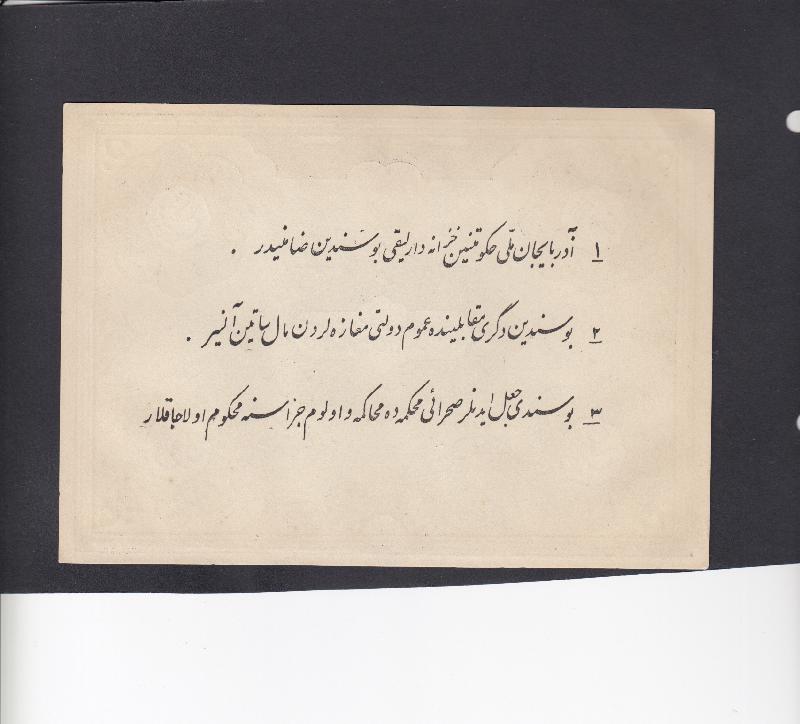 ۱ آذربایجان ملّی حکومتنین خزانه دارلیقی بو سندین ضامنیدر .
۲ بو سندین دگری مقابلینده عموم دولتی مغازه لردن مال ساتین آنیر .
۳ بو سندی جعل ایدنلر صحرائی محکمه ده محاکمه و اولوم جزاسنه محکوم اولاجاقلار